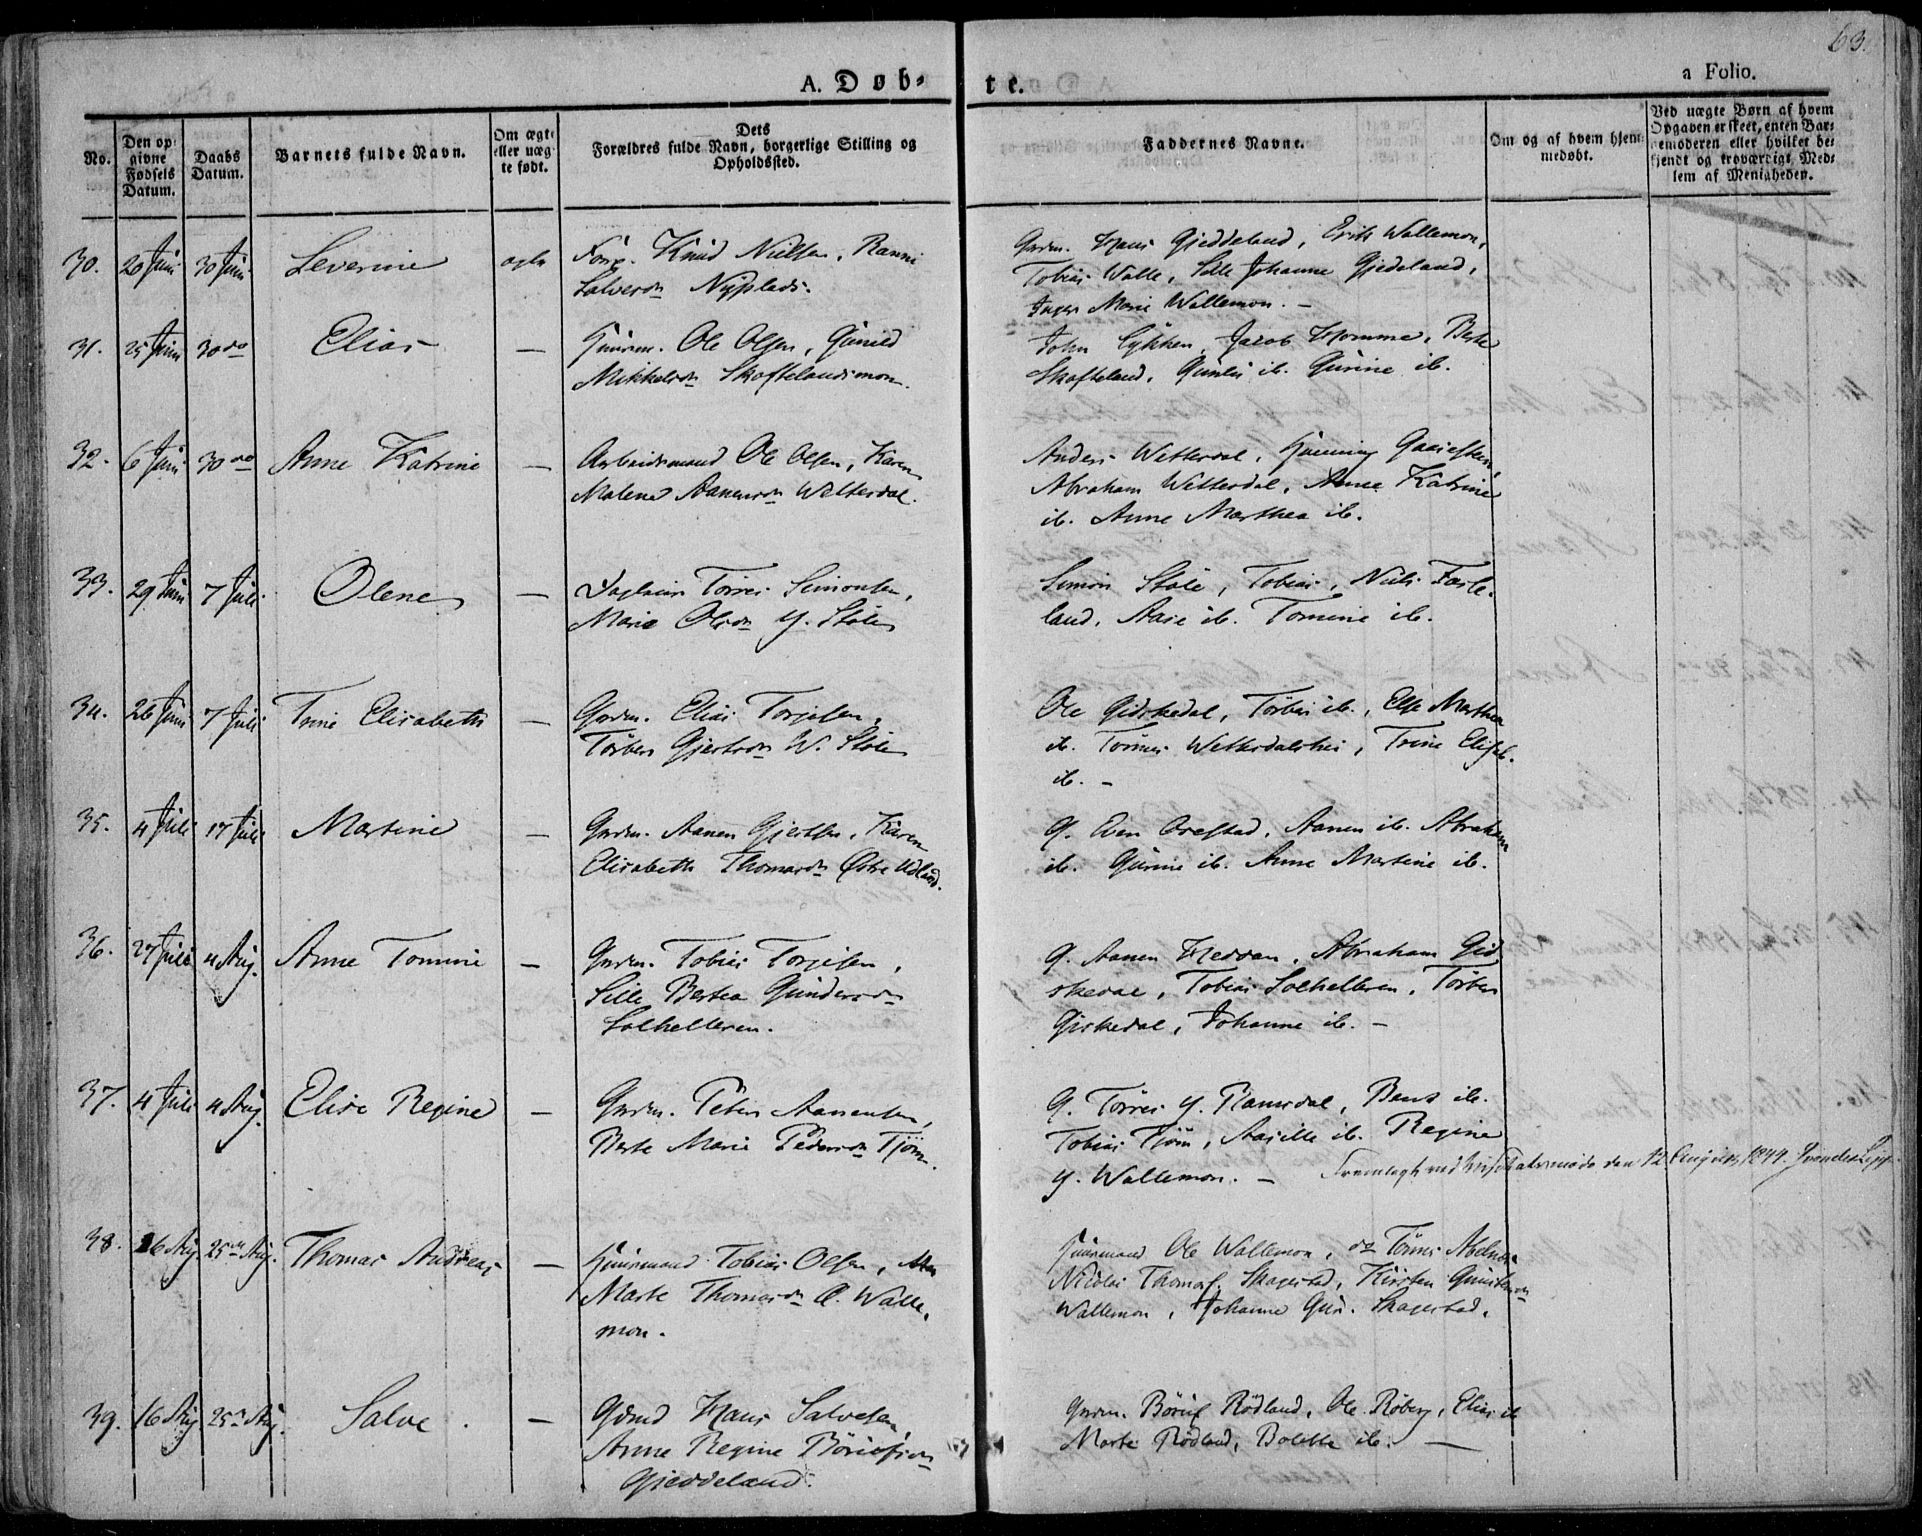 63.
A. Døb-
te.
a Folio.
No.
Den op-
givne
Fødsels
Datum.
Daabs
Datum.
Barnets fulde Navn.
Om ægte
eller uæg-
te født.
Dets
Forældres fulde Navn, borgerlige Stilling og
Opholdssted.
Faddernes Navne.
Om og af hvem hjem-
medøbt.
Ved uægte Børn af hvem
Opgaven er skeet, enten Bar-
nemoderen eller hvilket be-
kjendt og troværdigt Med-
lem af Menigheden.
30. 20 Juni 30 Juni Severine Knud Nielsen,
Salvesdr
Hans Gjeddeland, Erik Wallemon,
Tobias Walle, Sille Johanne Gjedeland,
Inger Marie Wallemon. –
31. 25 Juni 30 do Elias — Huusm. Ole Olsen, Gunild
Mikkelsdr Skoftelandsmon.
John Lykken, Jacob Homme, Berte
Skofteland, ib. Gurine ib.
32. 6 Juni 30 do Anne Katrine — Arbeidsmand Ole Olsen, Karen
Malene Aanensdr Wetterdal.
Anders Wetterdal,
Abraham Wetterdal, Anne Katrine
ib. Anne Marthea ib.
33. 29 Juni 7 Juli Olene — Torres Simonsen,
Marie Olsdr Y. Støle
Simon Støle, Tobias, Niels Fasle-
land, Aase ib. Tomine ib.
34. 26 Juni 7 Juli Trine Elisabeth — Grdm. Elias Torjesen,
Torbor Gjertsdr W. Støle
Ole Gidskedal, Torbør ib., Else Marthea
ib. Tønnes Wetterdalshei, Trine Elisab.
ib. –
35. 4 Juli 17 Juli Martine — Grdm. Aanen Gjertsen, Karen
Elisabeth Thomasdr Østre Udland.
G. Even Orestad, Aanen ib. Abraham
ib. Gurine ib. Anne Martine ib.
36. 27 Juli 4 Aug. Anne Tomine — Grdm. Tobias Torjesen,
Sille Bertea Gundersdr
Solhelleren.
G. Aanen Heddan, Abraham Gid
skedal, Tobias Solhelleren, Torbor
Gidskedal, Johanne ib. –
37. 4 Juli 4 Aug. Elise Regine — Grdm. Peter Aanensen,
Berte Marie Pedersdr Tjøm.
G. Torres Y. Ramsdal, ib.
Tobias Tjøm, Aasille ib. Regine
Y. Wallemon. – Fremlagt ved den 12 August 1844.
38. 16 Aug. 25de Aug. Thomas Andreas — Huusmand Tobias Olsen,
Marte Thomasdr Ø. Walle-
mon.
Huusmand Ole Wallemon, do Tønnes
Nicolai Thomas. Skagestad, Kirsten
Wallemon, Johanne Skagestad.
39. 16 Aug. 25de Aug. Salve. — Gdmd Hans Salvesen,
Anne Regine
Gjeddeland.
Grdm. Rødland, Ole Røberg, Elias ib
Marte Rødland, Bolette ib. —